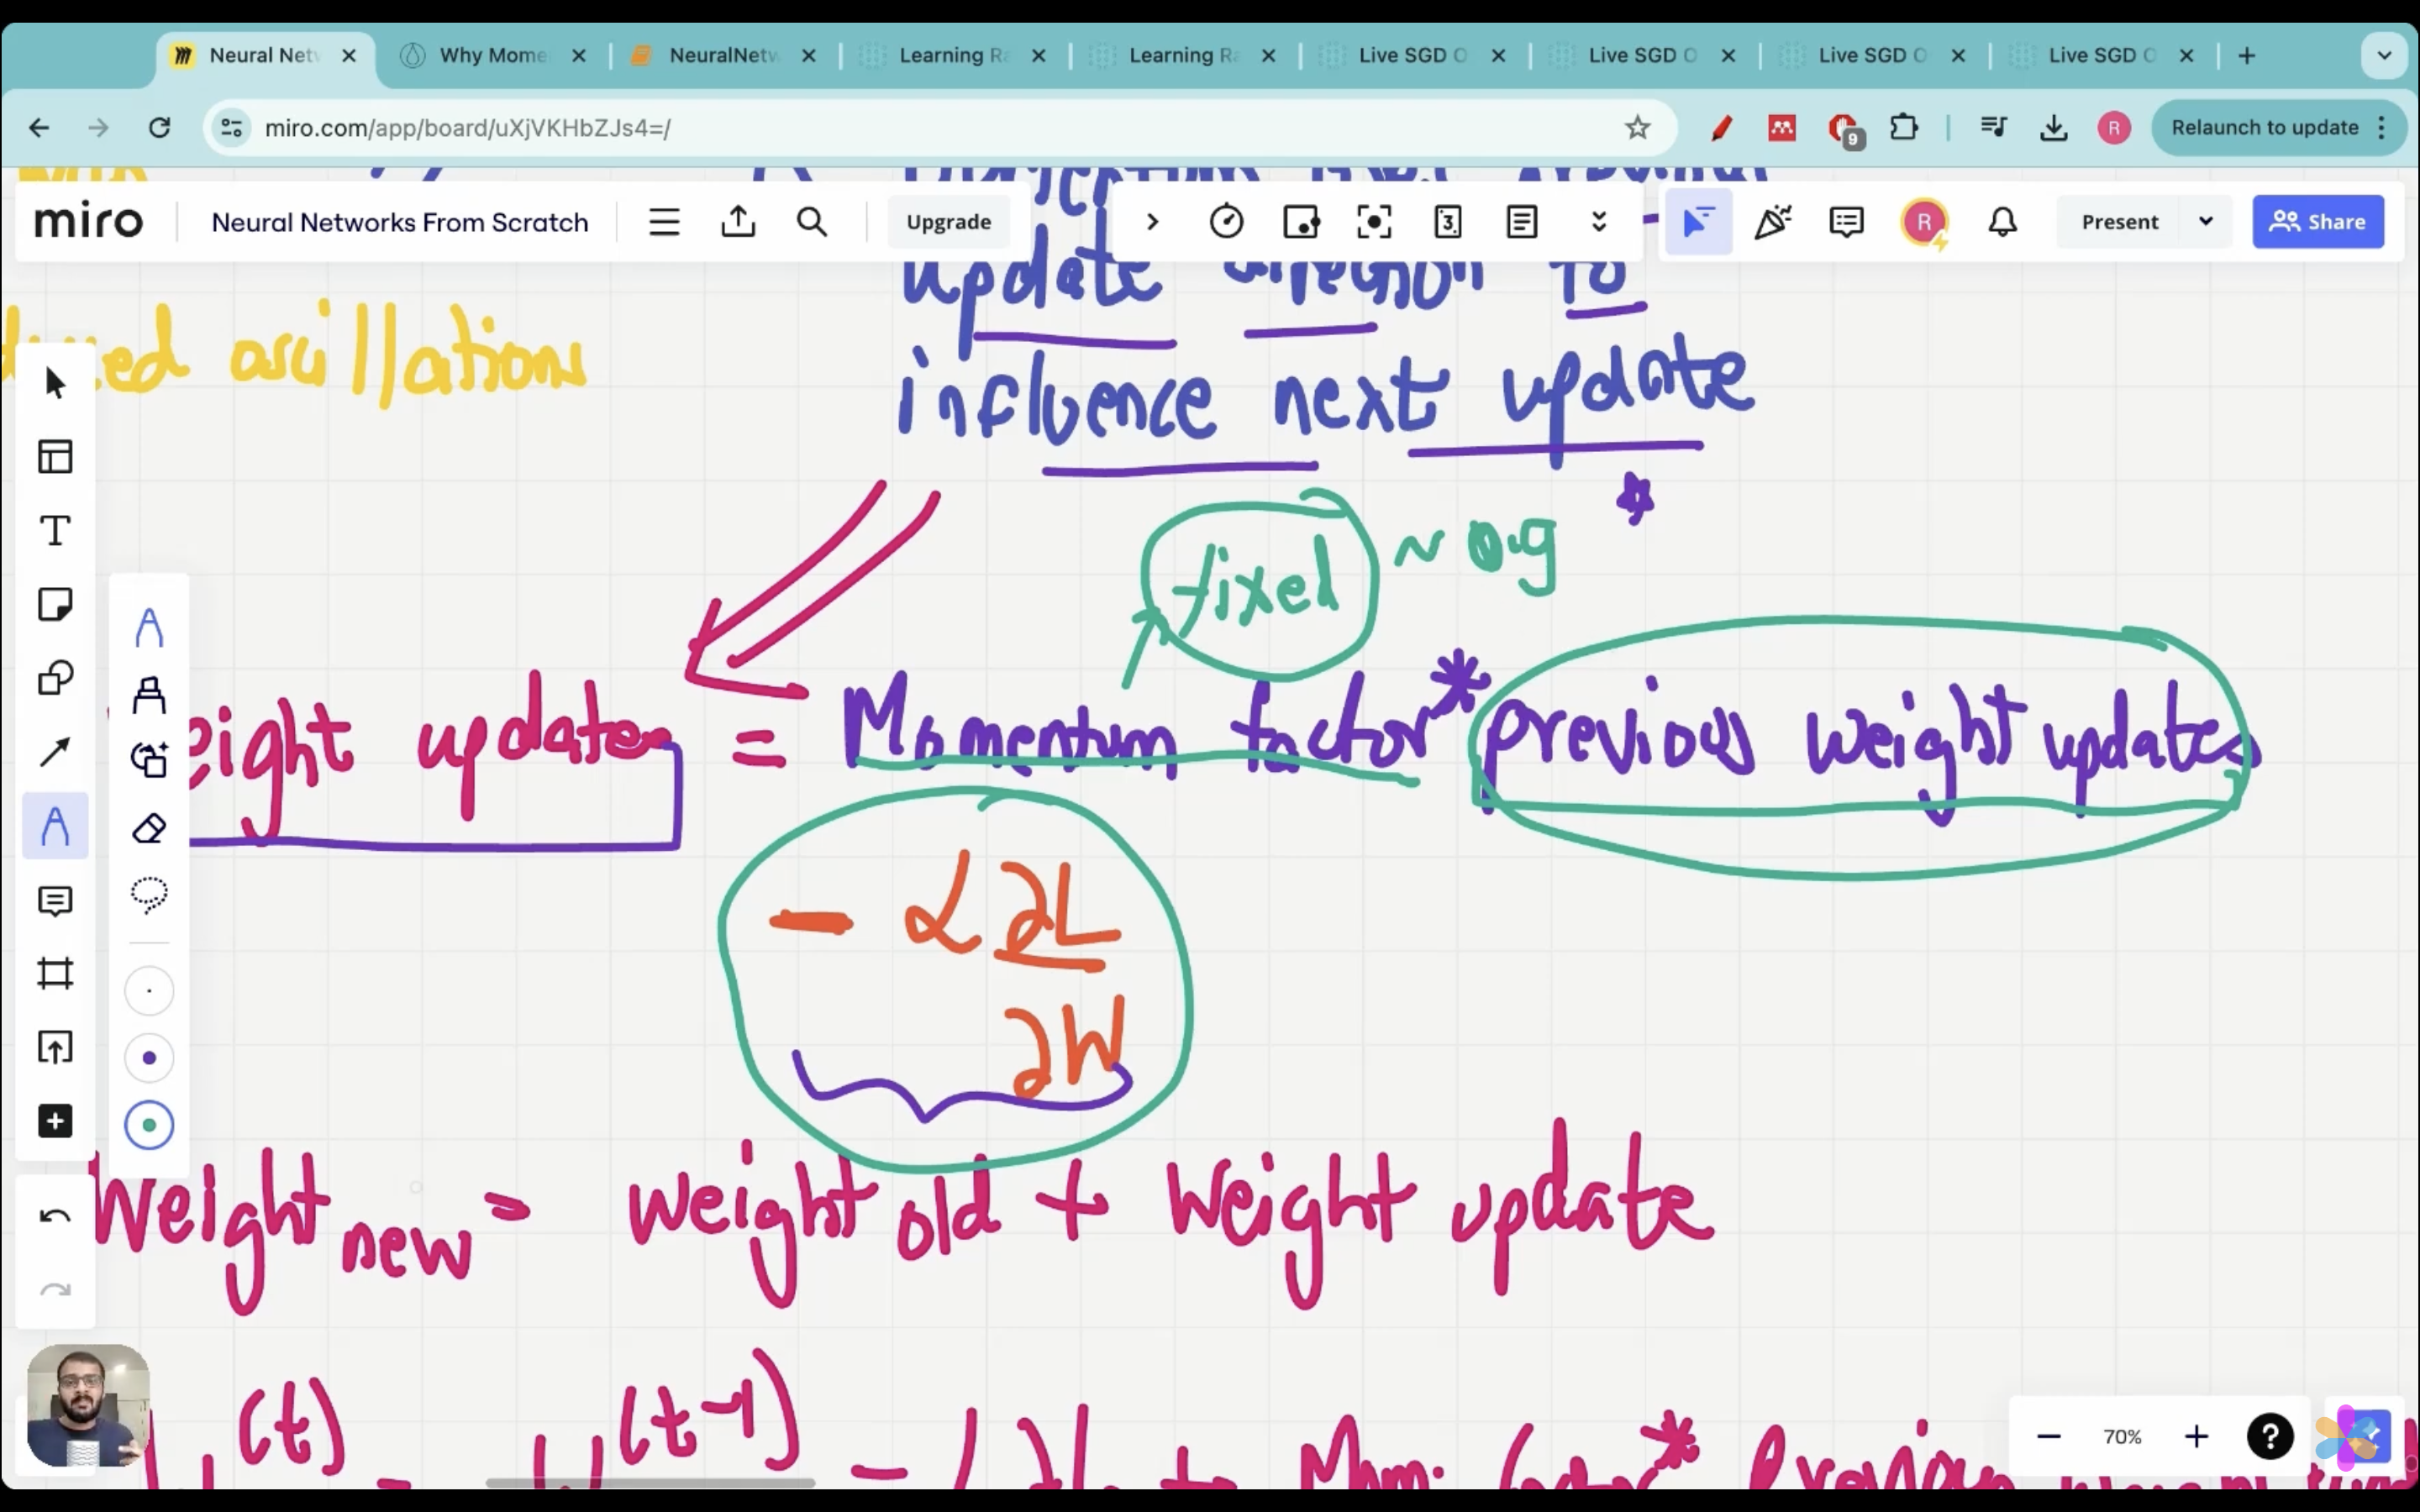 Neural Net
Why Mome
NeuralNetw
Learning Ra
Learning Ra
Live SGD O
Live SGD O
Live SGD O
Live SGD O
miro.com/app/board/uXjVKHbZJs4=/
9
R
Relaunch to update
miro
Neural Networks From Scratch
Upgrade
3
R
Present
Share
update direction to
oscillations
influence next update
fixed ~ 0.9
eight updates = Momentum factor * previous weight updates
- α ∂L
∂W
Weight new = weight old + Weight update
(t) = (t-1) - + Mom. factor * Previous
70%
?